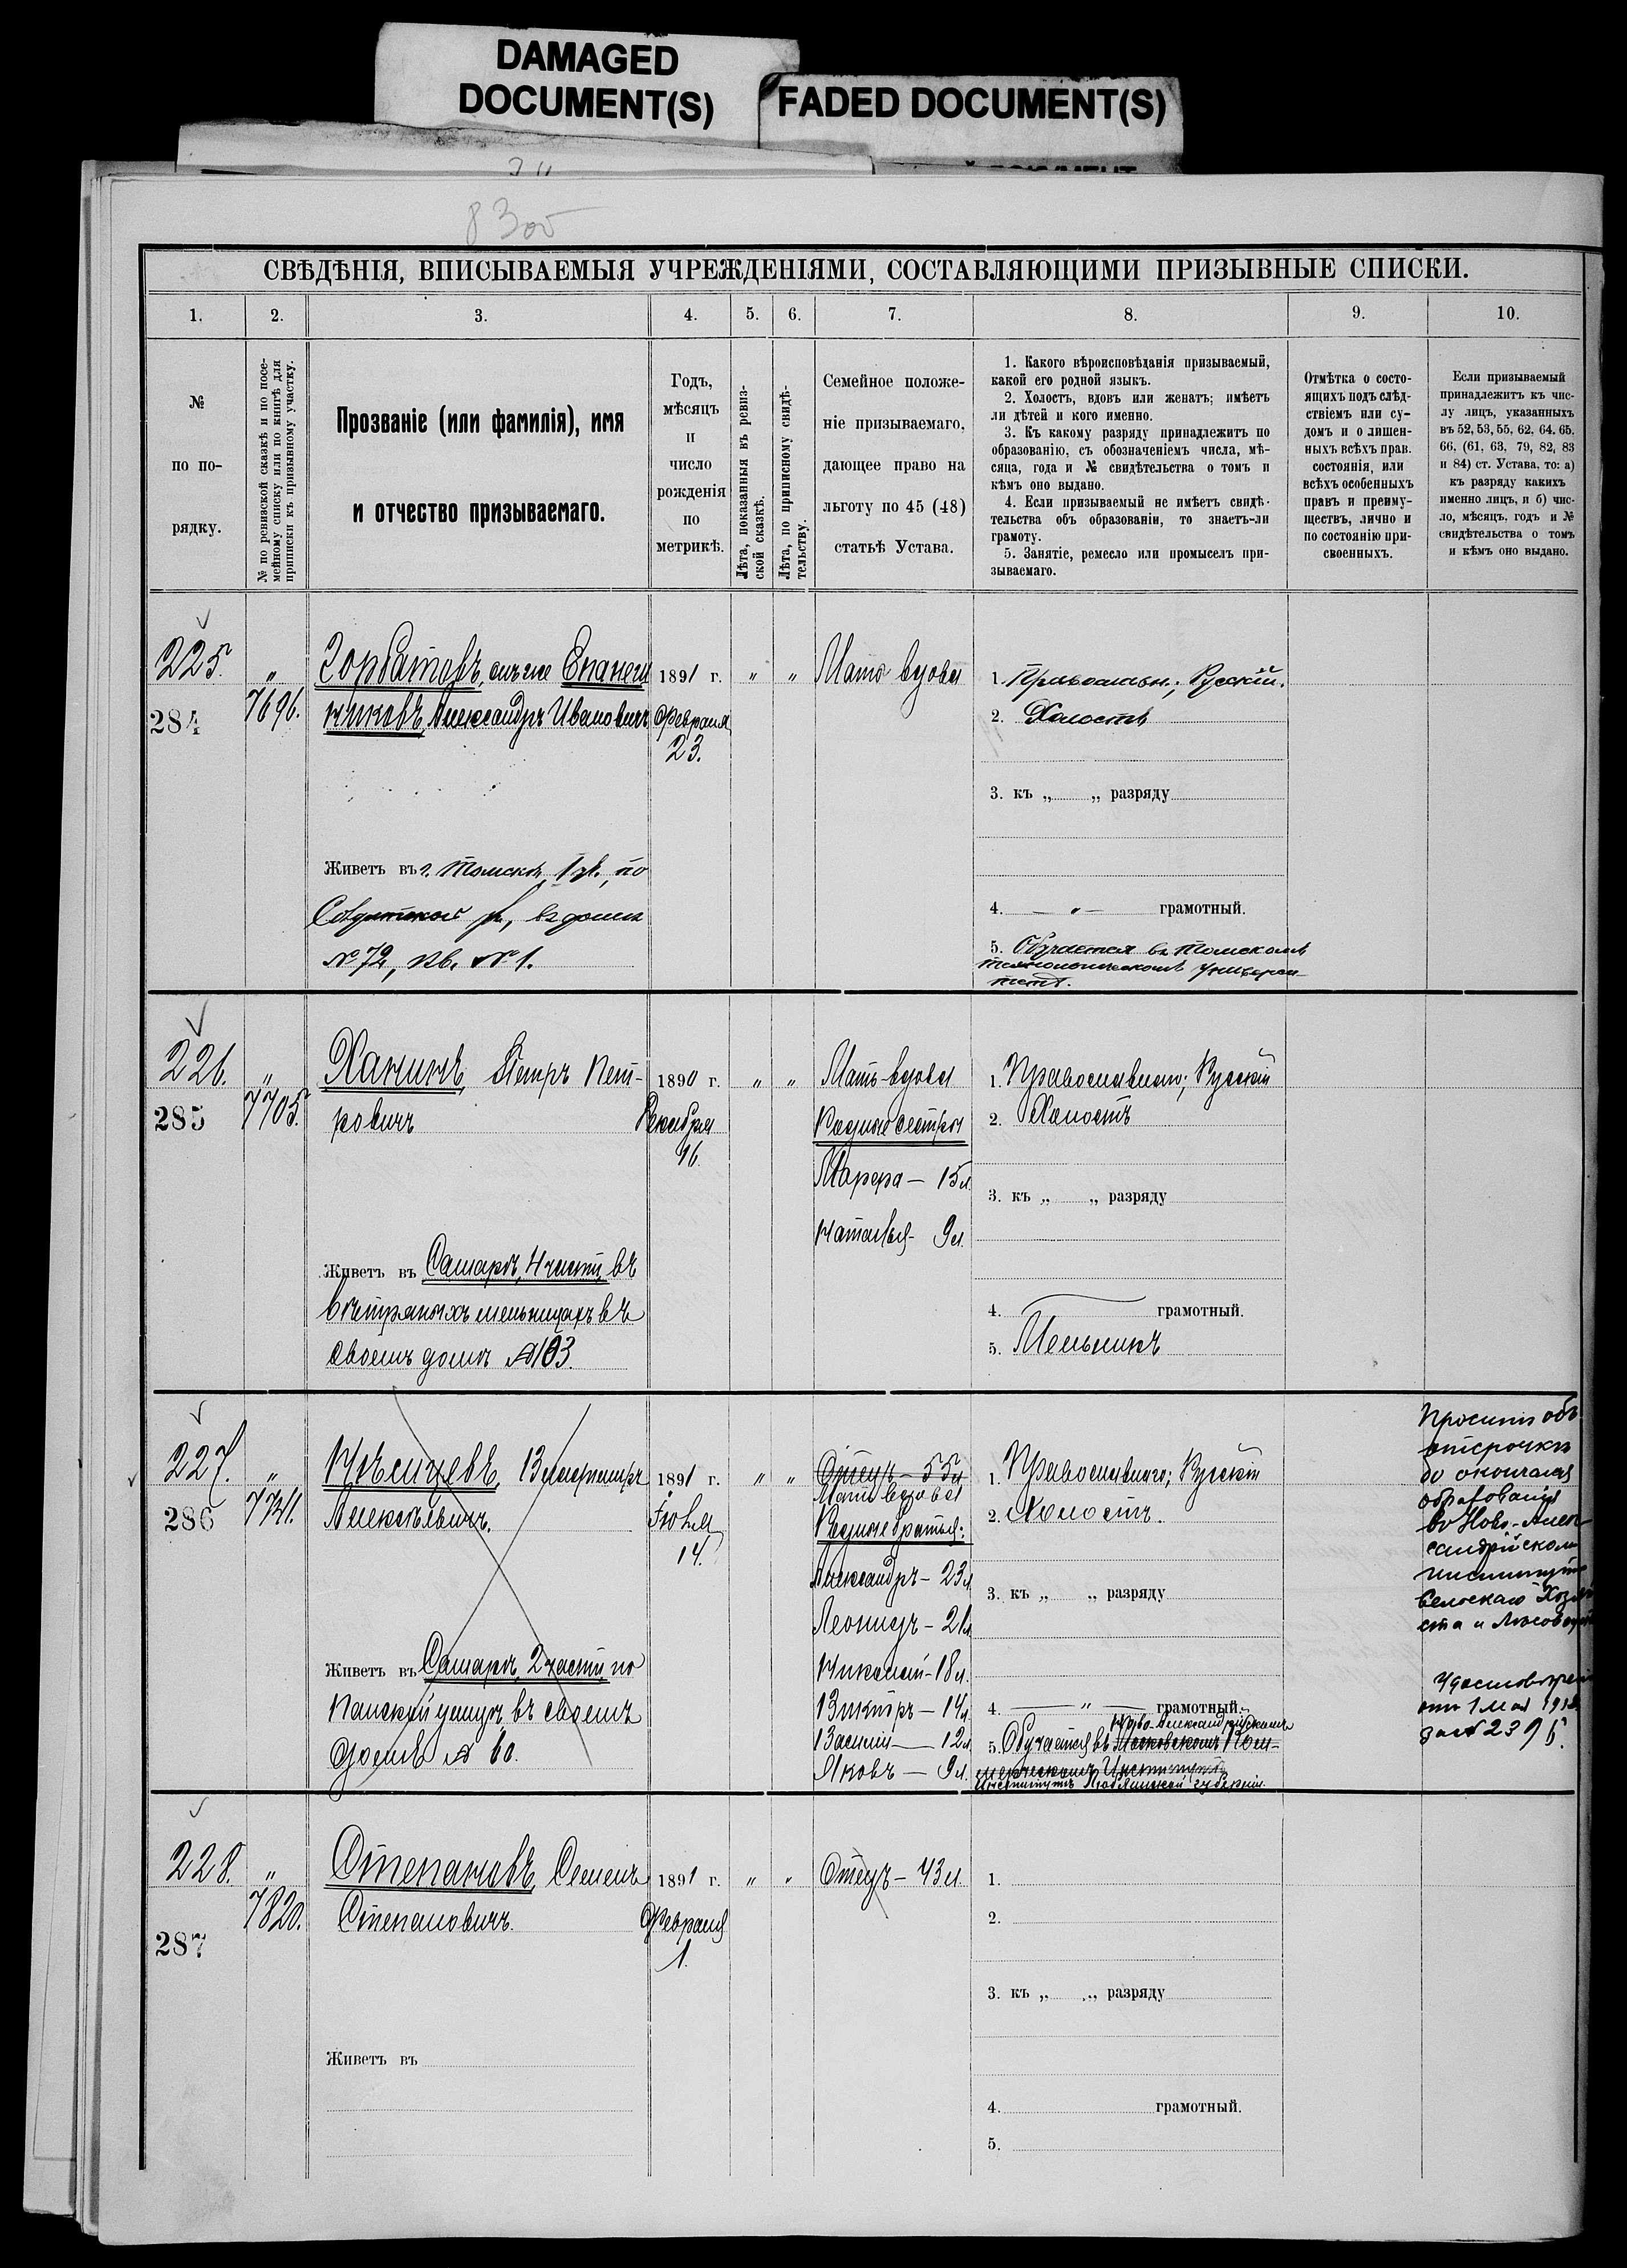 DAMAGED
DOCUMENT(S)
FADED DOCUMENT(S)
8300
СВѢДѢНІЯ, ВПИСЫВАЕМЫЯ УЧРЕЖДЕНІЯМИ, СОСТАВЛЯЮЩИМИ ПРИЗЫВНЫЕ СПИСКИ.
1. 2. 3. 4. 5. 6. 7. 8. 9. 10.
№
по по-
рядку.
№ по ревизской сказкѣ и по посе-
мейному списку или по книгѣ для
приписки къ призывному участку.
Прозваніе (или фамилія), имя
и отчество призываемаго.
Годъ,
мѣсяцъ
и
число
рожденія
по
метрикѣ.
Лѣта, показанныя въ ревиз-
ской сказкѣ.
Лѣта, по приписному свидѣ-
тельству.
Семейное положе-
ніе призываемаго,
дающее право на
льготу по 45 (48)
статьѣ Устава.
1. Какого вѣроисповѣданія призываемый,
какой его родной языкъ.
2. Холостъ, вдовъ или женатъ; имѣетъ
ли дѣтей и кого именно.
3. Къ какому разряду принадлежитъ по
образованію, съ обозначеніемъ числа, мѣ-
сяца, года и № свидѣтельства о томъ и
кѣмъ оно выдано.
4. Если призываемый не имѣетъ свидѣ-
тельства объ образованіи, то знаетъ-ли
грамоту.
5. Занятіе, ремесло или промыселъ при-
зываемаго.
Отмѣтка о состо-
ящихъ подъ слѣд-
ствіемъ или су-
домъ и о лишен-
ныхъ всѣхъ прав.
состоянія, или
всѣхъ особенныхъ
правъ и преиму-
ществъ, лично и
по состоянію при-
своенныхъ.
Если призываемый
принадлежитъ къ чис-
лу лицъ, указанныхъ
въ 52, 53, 55, 62, 64, 65,
66, (61, 63, 79, 82, 83
и 84) ст. Устава, то: а)
къ разряду какихъ
именно лицъ, и б) чис-
ло, мѣсяцъ, годъ и №
свидѣтельства о томъ
и кѣмъ оно выдано.
225.
284
"
7696.
Горбатовъ, онъ же Епанеш
никовъ, Александръ Ивановичъ
Живетъ въ г. Томскѣ, 1 уч., по
№ 72, кв. № 1.
1891 г.
Февраля
23.
" "
Мать вдова
1. Православн.; Русскій.
2. Холостъ
3. къ „ „ разряду
4. — " — грамотный.
5. Обучается въ Томскомъ
Технологическомъ Универси-
тетѣ.
226.
285
"
7705.
Ханинъ, Петръ Пет-
ровичъ
Живетъ въ Самарѣ, 4 части, въ
вѣтряныхъ мельницахъ въ
своемъ домѣ № 103.
1890 г.
Декабря
16.
" "
Мать-вдова
Родные сестры
Марѳа — 15 л.
Наталья - 9 л.
1. Православнаго; Русскій
2. Холостъ
3. къ „ „ разряду
4. грамотный.
5. Мельникъ
227.
286
"
7741.
Владиміръ
Алексѣевичъ.
Живетъ въ Самарѣ, 2 части, по
Панской улицѣ, въ своемъ
домѣ № 60.
1891 г.
Іюля
14.
" "
Отецъ — 55 л
Мать вдова
Родные братья:
Александръ - 23 л.
Леонидъ - 21 л.
Николай - 18 л.
Викторъ — 14 л.
Василій — 12 л.
Яковъ — 9 л.
1. Православнаго; Русскій
2. Холостъ.
3. къ „ „ разряду
4. — " — грамотный.
Ново-Александрійскомъ
5. Обучается въ Московскомъ Ком-
мерческомъ Институтѣ
Институтѣ Люблинской губерніи.
Проситъ объ
отсрочкѣ
до окончанія
образованія
въ Ново-Алек
сандрійскомъ
институтѣ
Сельскаго Хозяй
ста и Лѣсовод
Удостовѣреніе
отъ 1 мая 1912
за № 2395.
228.
287
"
7820.
Степановъ, Семенъ
Степановичъ.
Живетъ въ
1891 г.
Февраля
1.
" "
Отецъ — 43 л.
1.
2.
3. къ „ „ разряду
4. грамотный.
5.